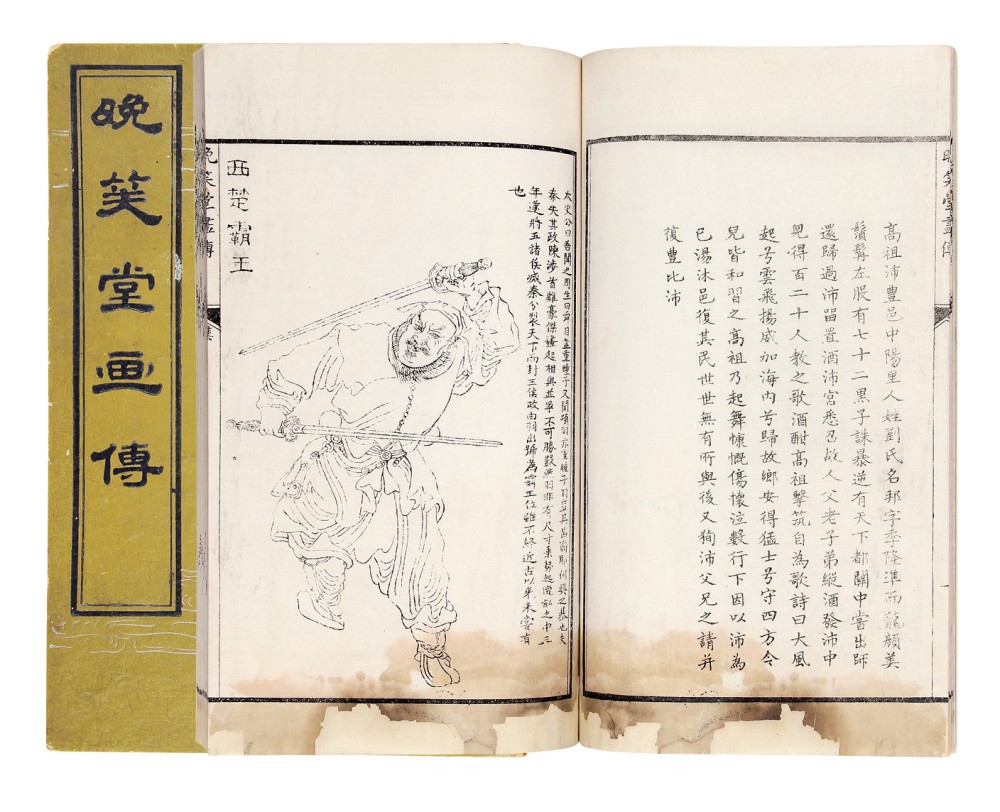 晚笑堂画傳
晚笑堂畫傳
高祖沛豐邑中陽里人姓劉氏名邦字季隆準而龍顏美
鬚髯左股有七十二黑子誅暴逆有天下都關中嘗出師
還歸過沛畱置酒沛宮悉召故人父老子弟縱酒發沛中
兒得百二十人教之歌酒酣高祖擊筑自為歌詩曰大風
起兮雲飛揚威加海內兮歸故鄉安得猛士兮守四方令
兒皆和習之高祖乃起舞慷慨傷懷泣數行下因以沛為
已湯沐邑復其民世世無有所與後又狥沛父兄之請并
復豐比沛
太史公曰吾聞之周生曰舜目蓋重瞳子又聞項羽亦重瞳子羽豈其苗裔耶何興之暴也夫
秦失其政陳涉首難豪傑蠭起相與並爭不可勝數然羽非有尺寸乘勢起隴畝之中三
年遂將五諸侯滅秦分裂天下而封王侯政由羽出歸為霸王位雖不終近古以來未嘗有
也
西楚霸王
晚笑堂畫傳